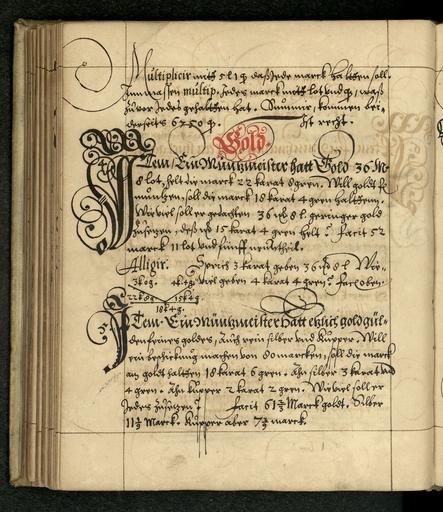 Multiplicir mitt 5 l 1 q̃ daß Jede marck haltten soll.
Inmassen multip. Jedes marck mitt lot vnd q̃, waß
zuvor Jedes gehaltten hat. Summir, kommen bei-
derseits 6250 q̃. Ist recht.
Gold.
Item, Ein Müntzmeister hatt Gold 36 M.
8 lot, helt die marck 22 karat 8 gren. Will goldt
müntzen, soll die marck 18 karat 4 gren haltten.
Wie viel soll er gedachten 36 8 l geringer gold
zusetzen, deß 15 karat 4 gren helt? facit 52
marck 11 lot vnd fünff neuntheil.
Alligir. Sprich 3 karat geben 36 8 l Wie-
3k 0g. 4k 4g. viel geben 4 karat 4 gren? fac: oben.
22k 8g 15k 4g
18k 4g.
Item. Ein Müntzmeister hatt etzlich goldgül-
den feines goldes, auch fein silber vnd kupper. Will
ein beschickung machen von 80 marcken, soll die marck
an goldt haltten 18 karat 6 gren. Ahn silber 3 karat vnd
4 gren. Ahn kupper 2 karat 2 gren. Wie viel soll er
Jedes zusetzen? facit 61⅔ Marck goldt. Silber
11 Marck. Kupper aber 7 marck.